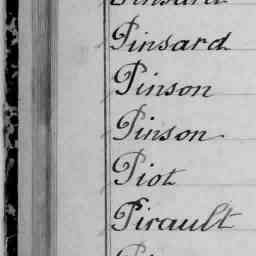 Pinsard
Pinson
Pinson
Piot
Pirault